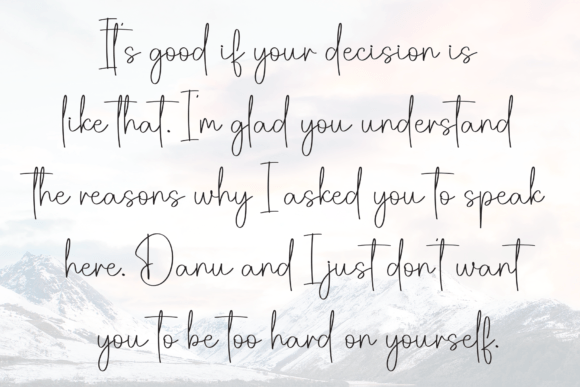 It's good if your decision is
like that. I'm glad you understand
the reasons why I asked you to speak
here. Danu and I just don't want
you to be too hard on yourself.